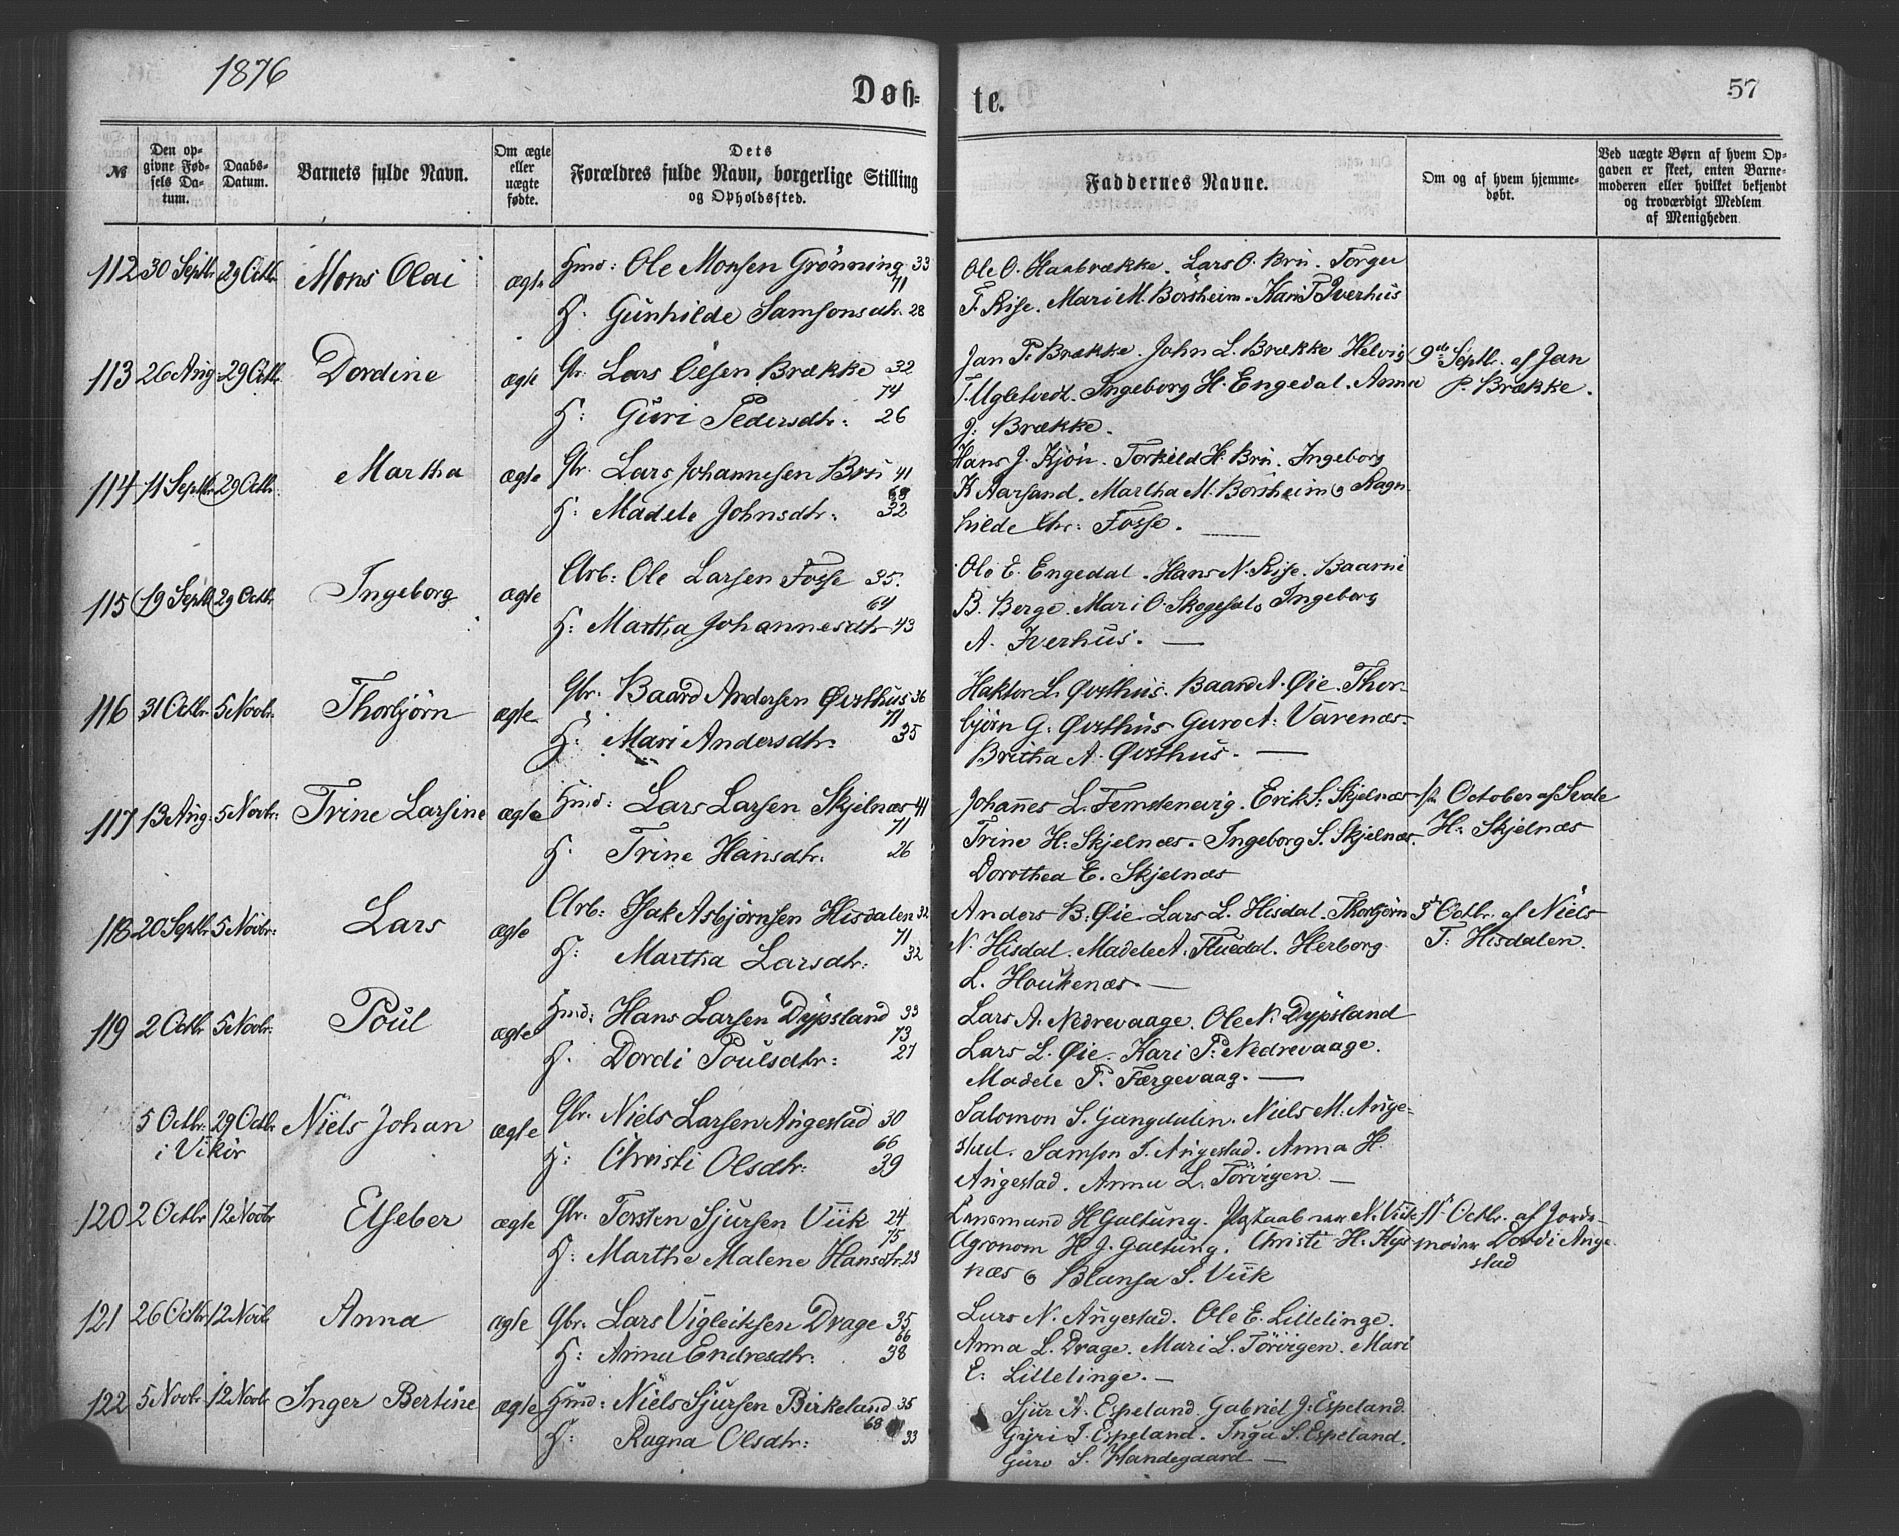 1876
Døb-
te.
57
№
Den op-
givne Fød-
sels Da-
tum.
Daabs-
Datum.
Barnets fulde Navn.
Om ægte
eller
uægte
fødte.
Dets
Forældres fulde Navn, borgerlige Stilling
og Opholdssted.
Faddernes Navne.
Om og af hvem hjemme-
døbt.
Ved uægte Børn af hvem Op-
gaven er skeet, enten Barne-
moderen eller hvilket bekjendt
og troværdigt Medlem
af Menigheden
112 30 Septbr 29 Octbr. Mons Olai ægte Hmd: Ole Monsen Grönning 33
71
H. Gunhilde Samsonsdtr. 28
Ole O. Haabrække. Lars O. Bru. Torger
T. Rise. Mari M. Börsheim. Kari T Iverhus
113 26 Aug 29 Octbr. Dordine ægte Gbr. Lars Olesen Brække 32
74
H: Guri Pedersdtr. 26
Jan P. Brække. John L. Brække Helvig
T. Ugletvedt. Ingeborg H. Engedal. Anna
J: Brække.
9de Septb. af Jan
P. Brække.
114 11 Septbr 29 Octbr. Martha ægte Gbr. Lars Johannesen Bru 41
68
H: Madele Johnsdtr. 32
Hans J. Kjön. Torkild H. Bru. Ingeborg
K Aarsand. Martha M. Borsheim og Ragn-
hilde Chr: Fosse.
115 19 Septb 29 Octbr Ingeborg ægte Arb: Ole Larsen Fosse 35.
64
H: Martha Johannesdtr 43
Ole E. Engedal. Hans N. Rise. Baarni
B. Berge. Mari O. Skogesal. Ingeborg
A. Iverhus.
116 31 Octbr. 5 Novbr. Thorbjörn ægte Gbr. Baard Andersen Øvsthus 36
71
H: Mari Andersdtr. 35
Haktor L. Øvsthus. Baard A. Øie. Thor-
bjørn G. Øvsthus Guro A: Varenæs.
Britha A. Øvsthus.
117 13 Aug. 5 Novbr: Trine Larsine ægte Hmd: Lars Larsen Skjelnæs 41
71
H. Trine Hansdtr. 26
Johannes L. Femstenevig. Erik S. Skjelnæs
Trine H. Skjelnæs. Ingeborg S. Skjelnæs.
Dorothea E. Skjelnæs
1ste October af
H: Skjelnæs
118 20 Septbr. 5 Novbr: Lars ægte Arb: Isak Asbjörnsen Hisdalen 32
71
H: Martha Larsdtr. 32
Anders B. Øie. Lars L. Hisdal. Thorbjörn
N. Hisdal. Madele A. Fluedal. Herborg
L. Houkenæs.
5te Octbr. af Niels
T: Hisdalen.
119 2 Octbr 5 Novbr. Poul ægte Hmd: Hans Larsen Dypsland 33
73
H. Dordi Poulsdtr: 27
Lars A. Nedrevaage. Ole N. Dypsland
Lars L. Øie. Kari P. Nedrevaage.
Madele P. Færgevaag.
5 Octbr. 29 Octbr Niels Johan ægte Gbr. Niels Larsen Augestad 30
i Vikör
66
H: Christi Olsdtr. 39
Salomon S. Gangdalen. Niels M. Auge-
stad. Samson T. Augestad. Anna H.
Augestad. Anna L. Törvigen.
120 2 Octbr 12 Novbr Elseber ægte Gbr. Torsten Sjursen Viik 24
75
H: Martha Malene Hansdtr. 23
Lensmand H Galtung. N. Viik
Agronom H J. Galtung. Christi H. Kys-
næs og Blansa S. Viik
11te Octbr. af Jorde-
moder Dordi Auge-
stad
121 26 Octbr 12 Novb. Anna ægte Gbr. Lars Vigleiksen Drage 35
66
H: Anna Endresdtr. 38
Lars N. Augestad. Ole E. Lillelinge.
Anna L. Drage. Mari L. Törvigen. Mari
E. Lillelinge.
122 5 Novbr 12 Novbr Inger Bertine ægte Hmd: Niels Sjursen Birkeland 35
68
H: Ragna Olsdtr: 33
Sjur A. Espeland. Gabriel J. Espeland.
Gyri J. Espeland. Inga S. Espeland.
Guro S. Handegaard